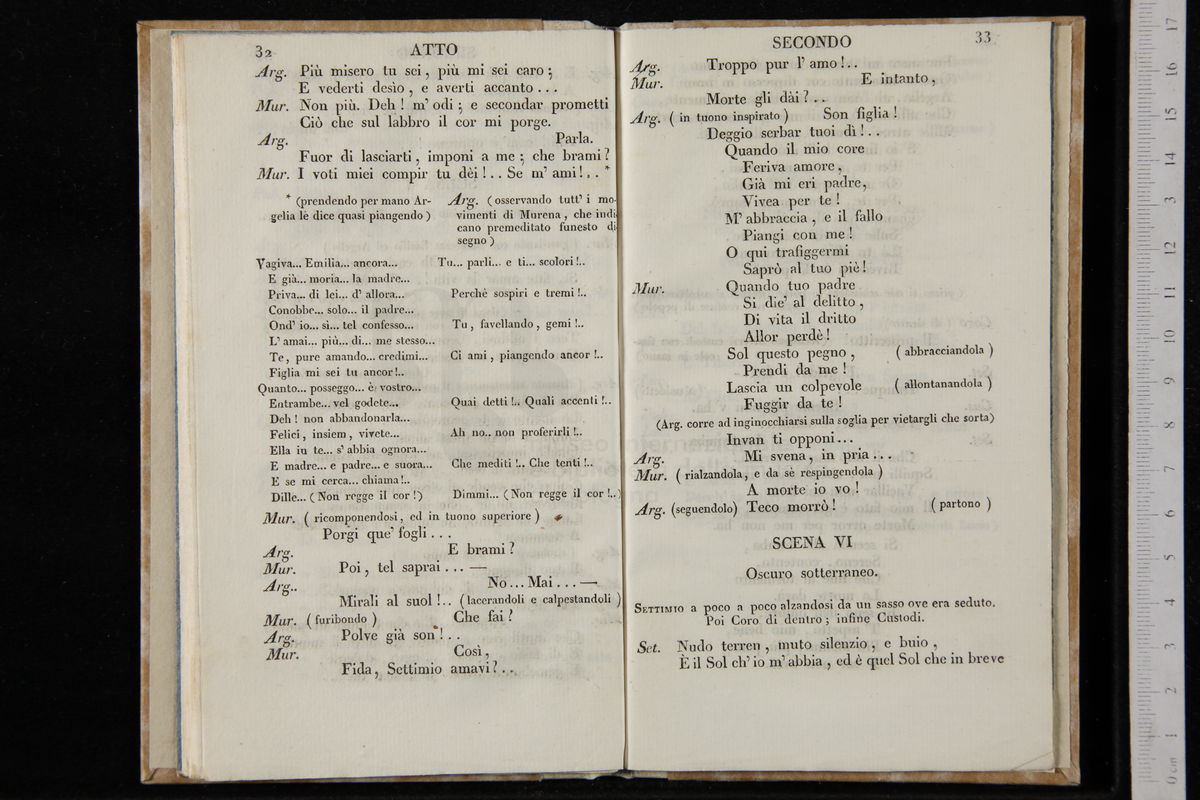 32 ATTO
Arg. Più misero tu sei, più mi sei caro;
E vederti desìo, e averti accanto...
Mur. Non più. Deh! m' odi; e secondar prometti
Ciò che sul labbro il cor mi porge.
Arg. Parla.
Fuor di lasciarti, imponi a me; che brami?
Mur. I voti miei compir tu dèi!.. Se m' ami!.. *
* (prendendo per mano Ar-
gelia le dice quasi piangendo)
Vagiva... Emilia... ancora...
E già... moria... la madre...
Priva... di lei... d' allora...
Conobbe... solo... il padre...
Ond' io... sì... tel confesso...
L' amai... più... di... me stesso...
Te, pure amando... credimi...
Figlia mi sei tu ancor!..
Quanto... posseggo... è vostro...
Entrambe... vel godete...
Deh! non abbandonarla...
Felici, insiem, vivete...
Ella in te... s' abbia ognora...
E madre... e padre... e suora...
E se mi cerca... chiama!..
Dille... (Non regge il cor!)
Arg. (osservando tutt' i mo-
vimenti di Murena, che indi
cano premeditato funesto di
segno)
Tu... parli... e ti... scolori!..
Perchè sospiri e tremi!..
Tu, favellando, gemi!..
Ci ami, piangendo ancor!..
Quai detti!.. Quali accenti!..
Ah no.. non proferirli!..
Che mediti!.. Che tenti!..
Dimmi... (Non regge il cor!..)
Mur. (ricomponendosi, ed in tuono superiore)
Porgi que' fogli...
Arg. E brami?
Mur. Poi, tel saprai... —
Arg.. No... Mai... —
Mirali al suol!.. (lacerandoli e calpestandoli)
Mur. (furibondo) Che fai?
Arg. Polve già son'!..
Mur. Così,
Fida, Settimio amavi?...
SECONDO 33
Arg. Troppo pur l' amo!..
Mur. E intanto,
Morte gli dài?..
Arg. (in tuono inspirato) Son figlia!
Deggio serbar tuoi dì!..
Quando il mio core
Feriva amore,
Già mi eri padre,
Vivea per te!
M' abbraccia, e il fallo
Piangi con me!
O qui trafiggermi
Saprò al tuo piè!
Mur. Quando tuo padre
Si die' al delitto,
Di vita il dritto
Allor perdè!
Sol questo pegno, (abbracciandola)
Prendi da me!
Lascia un colpevole (allontanandola)
Fuggir da te!
(Arg. corre ad inginocchiarsi sulla soglia per vietargli che sorta)
Invan ti opponi...
Arg. Mi svena, in pria...
Mur. (rialzandola, e da sè respingendola)
A morte io vo!
Arg. (seguendolo) Teco morrò! (partono)
SCENA VI
Oscuro sotterraneo.
SETTIMIO a poco a poco alzandosi da un sasso ove era seduto.
Poi Coro di dentro; infine Custodi.
Set. Nudo terren, muto silenzio, e buio,
È il Sol ch' io m' abbia, ed è quel Sol che in breve
0 cm 1 2 3 4 5 6 7 8 9 10 11 12 13 14 15 16 17